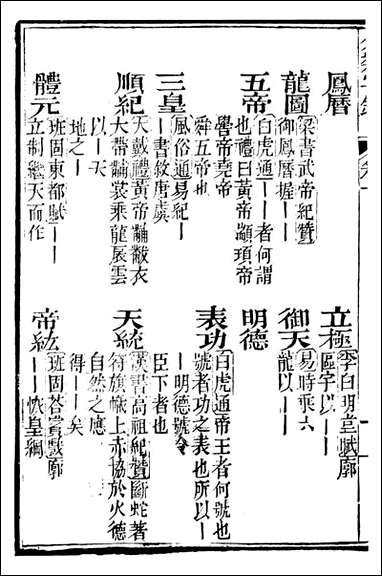 鳳曆
立極
李白明堂賦廓
區宇以丨丨
龍圖
梁書武帝紀贊
御鳳曆握丨丨
御天
易時乘六
龍以丨丨
五帝
白虎通丨丨者何謂
也禮曰黃帝顓頊帝
嚳帝堯帝
舜五帝也
明德
表功
白虎通帝王者何號也
號者功之表也所以丨
丨明德號令
臣下者也
三皇
風俗通易紀丨
丨書敘唐虞
順紀
大戴禮黃帝黼黻衣
大帶黼裳乘龍扆雲
以丨天
地之丨
天統
漢書高祖紀贊斷蛇著
符旗幟上赤協於火德
自然之應
得丨丨矣
體元
班固東都賦丨丨
立制繼天而作
帝紘
班固荅賓戲廓
丨丨恢皇綱